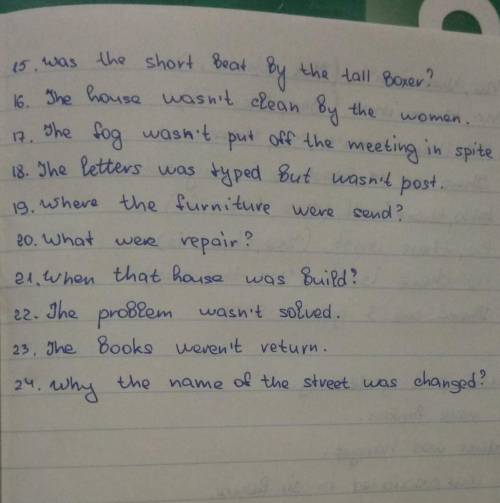 15. Was the short beat by the tall boxer?
16. The house wasn't clean by the women.
17. The fog wasn't put off the meeting in spite
18. The letters was typed but wasn't post.
19. Where the furniture were send?
20. What were repair?
21. When that house was build?
22. The problem wasn't solved.
23. The books weren't return.
24. Why the name of the street was changed?